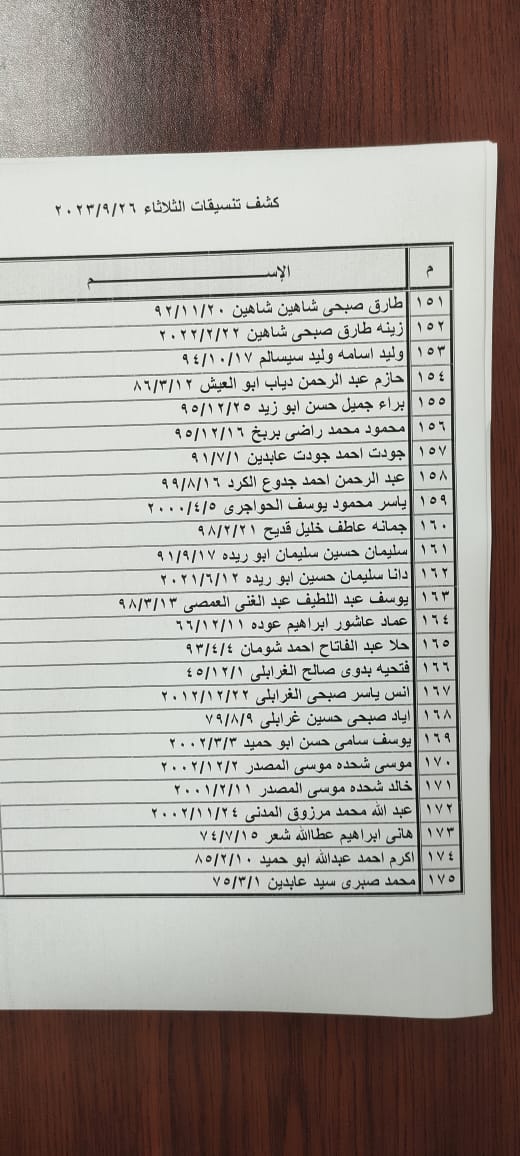 كشف تنسيقات الثلاثاء ٢٠٢٣/٩/٢٦
م الإســـــــــــــــــــــــم
١٥١ طارق صبحى شاهين شاهين ٩٢/١١/٢٠
١٥٢ زينه طارق صبحى شاهين ٢٠٢٢/٢/٢٢
١٥٣ وليد اسامه وليد سيسالم ٩٤/١٠/١٧
١٥٤ حازم عبد الرحمن دياب ابو العيش ٨٦/٣/١٢
١٥٥ براء جميل حسن ابو زيد ٩٥/١٢/٢٥
١٥٦ محمود محمد راضى بربخ ٩٥/١٢/١٦
١٥٧ جودت احمد جودت عابدين ٩١/٧/١
١٥٨ عبد الرحمن احمد جدوع الكرد ٩٩/٨/١٦
١٥٩ ياسر محمود يوسف الحواجرى ٢٠٠٠/٤/٥
١٦٠ جمانه عاطف خليل قديح ٩٨/٢/٢١
١٦١ سليمان حسين سليمان ابو ريده ٩١/٩/١٧
١٦٢ دانا سليمان حسين ابو ريده ٢٠٢١/٦/١٢
١٦٣ يوسف عبد اللطيف عبد الغنى العمصى ٩٨/٣/١٣
١٦٤ عماد عاشور ابراهيم عوده ٦٦/١٢/١١
١٦٥ حلا عبد الفاتاح احمد شومان ٩٣/٤/٤
١٦٦ فتحيه بدوى صالح الغرابلى ٤٥/١٢/١
١٦٧ انس ياسر صبحى الغرابلى ٢٠١٢/١٢/٢٢
١٦٨ اياد صبحى حسين غرابلى ٧٩/٨/٩
١٦٩ يوسف سامى حسن ابو حميد ٢٠٠٢/٣/٣
١٧٠ موسى شحده موسى المصدر ٢٠٠٢/١٢/٢
١٧١ خالد شحده موسى المصدر ٢٠٠١/٢/١١
١٧٢ عبد الله محمد مرزوق المدنى ٢٠٠٢/١١/٢٤
١٧٣ هانى ابراهيم عطاالله شعر ٧٤/٧/١٥
١٧٤ اكرم احمد عبدالله ابو حميد ٨٥/٢/١٠
١٧٥ محمد صبرى سيد عابدين ٧٥/٣/١